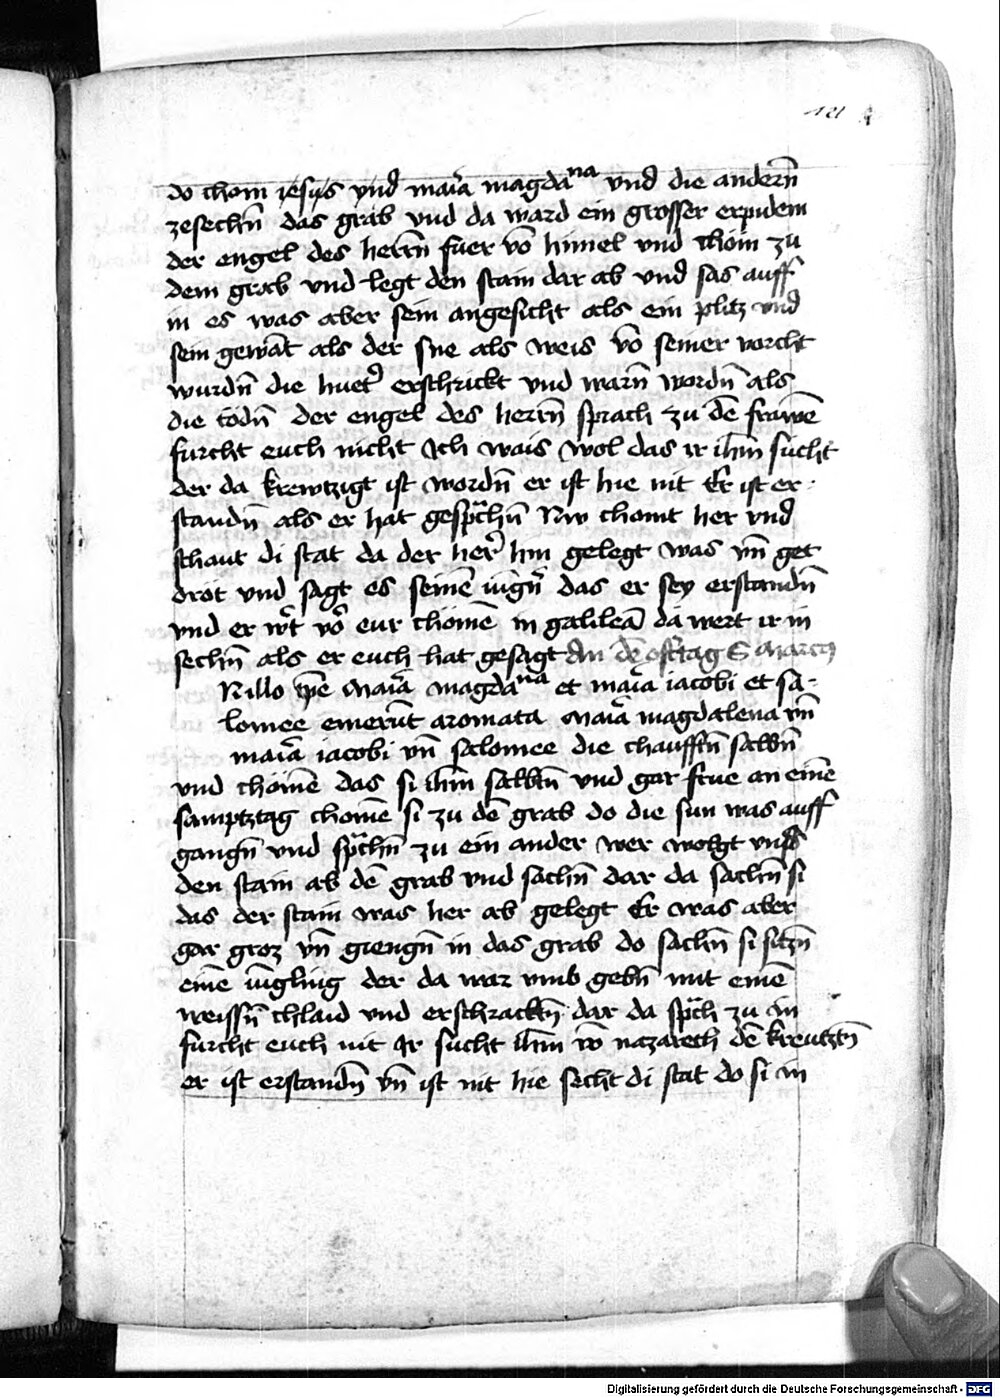 121
do chom iesus vnd maria magdana vnd die andern̄
zesechn̄ das grab vnd da ward ein grosser erpidem
der engel des herrn̄ fuer vō himel vnd chom zu
dem grab vnd legt den stain dar ab vnd sas auff
in es was aber sein angesicht als ein plitz vnd
sein gewāt als der sne als weis vō seiner vorcht
wurdn̄ die huet̉ erschrickt vnd warn̄ wordn̄ als
die todn̄ der engel des herrn̄ sprach zu dē frawē
furcht euch nicht Ich wais wol das ir ih̄m sucht
der da krewtzigt ist wordn̄ er ist hie nit Er ist er
standn̄ als er hat gesprochn̄ Nw chomt her vnd
schaut di stat da der her̉ hin gelegt was vn̄ get
drot vnd sagt es seinē iūgn̄ das er sey erstandn̄
vnd er wirt vor eur chomē in galileā da wert ir in
sechn̄ als er euch hat gesagt An dē ostertag S Marcus
Nillo tp̄e Maria magdana et maria iacobi et sa-
lomee emerūt aromata Maria magdalena vn̄
maria iacobi vn̄ salomee die chaufftn̄ salbn̄
vnd chomē das si ih̄m salbtn̄ vnd gar frue an einē
samptztag chomē si zu dē grab do die sun was auff
gangn̄ vnd sprachn̄ zu ein ander wer wolgt vns
den stain ab dē grab vnd sachn̄ dar da sachn̄ si
das der stain was her ab gelegt Er was aber
gar groz vn̄ giengn̄ in das grab do sachn̄ si sitzn̄
einē iūgling der da waz vmb gebn̄ mit einē
weissn̄ chlaid vnd erschracktn̄ dar da sprach zu in
furcht euch nit Ir sucht ih̄m vō nazareth dē kreutztn̄
er ist erstandn̄ vn̄ ist nit hie secht di stat do si in
Digitalisierung gefördert durch die Deutsche Forschungsgemeinschaft - DFG